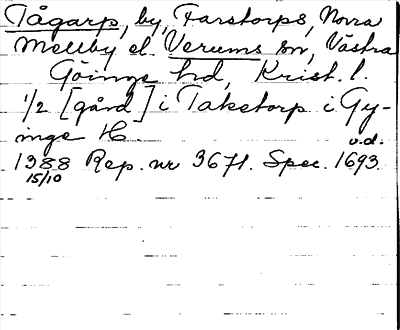 Tågarp, by, Farstorps, Norra
Mellby el. Verums sn, Västra
Göinge hd, Krist. l.
1/2 [gård] i Taketorp i Gy-
inge H
1388 Rep. nr 3671. Spec. 1693 u.d.
15/10